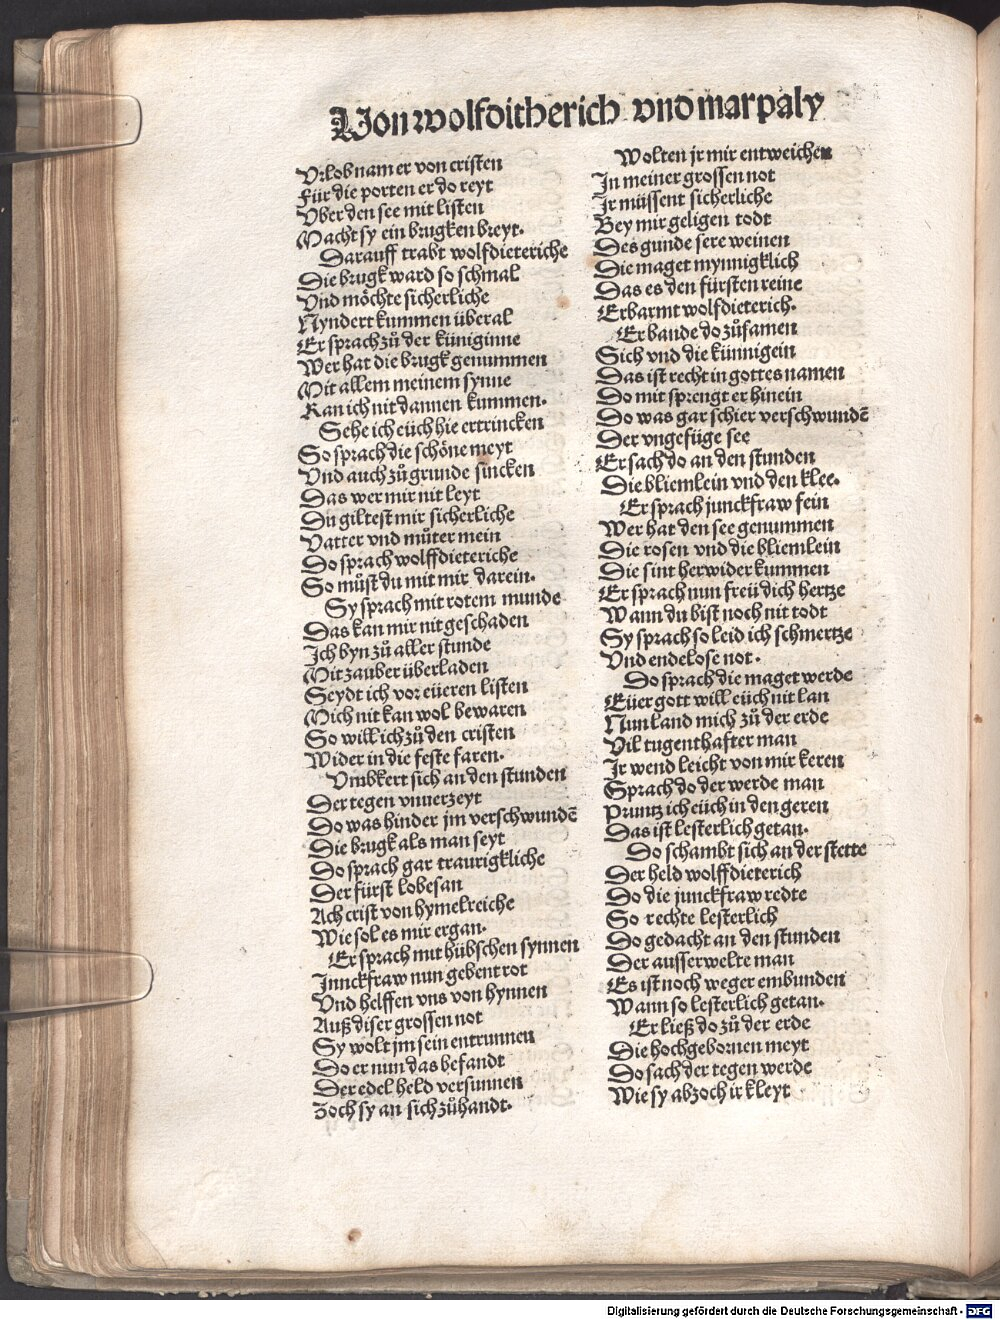 Von wolfditherich vnd marpaly
Vrlob nam er von cristen
Für die porten er do reyt
Vber den see mit listen
Macht sy ein brugken breyt.
Darauff trabt wolfdieteriche
Die brugk ward so schmal
Vnd möchte sicherliche
Nyndert kummen überal
Er sprach zů der küniginne
Wer hat die brugk genummen
Mit allem meinem synne
Kan ich nit dannen kummen.
Sehe ich eüch hie ertrincken
So sprach die schöne meyt
Vnd auch zů grunde sincken
Das wer mir nit leyt
Du giltest mir sicherliche
Vatter vnd můter mein
Do sprach wolffdieteriche
So můst du mit mir darein.
Sy sprach mit rotem munde
Das kan mir nit geschaden
Ich byn zů aller stunde
Mit zauber überladen
Seydt ich vor eüeren listen
Mich nit kan wol bewaren
So will ich zů den cristen
Wider in die feste faren.
Vmbkert sich an den stunden
Der tegen vnuerzeyt
Do was hinder jm verschwundē
Die brugk als man seyt
Do sprach gar traurigkliche
Der fürst lobesan
Ach crist von hymelreiche
Wie sol es mir ergan.
Er sprach mit hübschen synnen
Junckfraw nun gebent rot
Vnd helffen vns von hynnen
Auß diser grossen not
Sy wolt jm sein entrunnen
Do er nun das befandt
Der edel held versunnen
Zoch sy an sich zůhandt.
Wolten jr mir entweichen
In meiner grossen not
Jr müssent sicherliche
Bey mir geligen todt
Des gunde sere weinen
Die maget mynnigklich
Das es den fürsten reine
Erbarmt wolfdieterich.
Er bande do zůsamen
Sich vnd die künnigein
Das ist recht in gottes namen
Do mit sprengt er hinein
Do was gar schier verschwundē
Der vngefüge see
Er sach do an den stunden
Die bliemlein vnd den klee.
Er sprach junckfraw fein
Wer hat den see genummen
Die rosen vnd die bliemlein
Die sint herwider kummen
Er sprach nun freü dich hertze
Wann du bist noch nit todt
Sy sprach so leid ich schmertze
Vnd endelose not.
Do sprach die maget werde
Eüer gott will eüch nit lan
Nun land mich zů der erde
Vil tugenthafter man
Jr wend leicht von mir keren
Sprach do der werde man
Pruntz ich eüch in den geren
Das ist lesterlich getan.
Do schambt sich an der stette
Der held wolffdieterich
Do die junckfraw redte
So rechte lesterlich
Do gedacht an den stunden
Der ausserwelte man
Es ist noch weger embunden
Wann so lesterlich getan.
Er ließ do zů der erde
Die hochgebornen meyt
Do sach der tegen werde
Wie sy abzoch ir kleyt
Digitalisierung gefördert durch die Deutsche Forschungsgemeinschaft - DFG